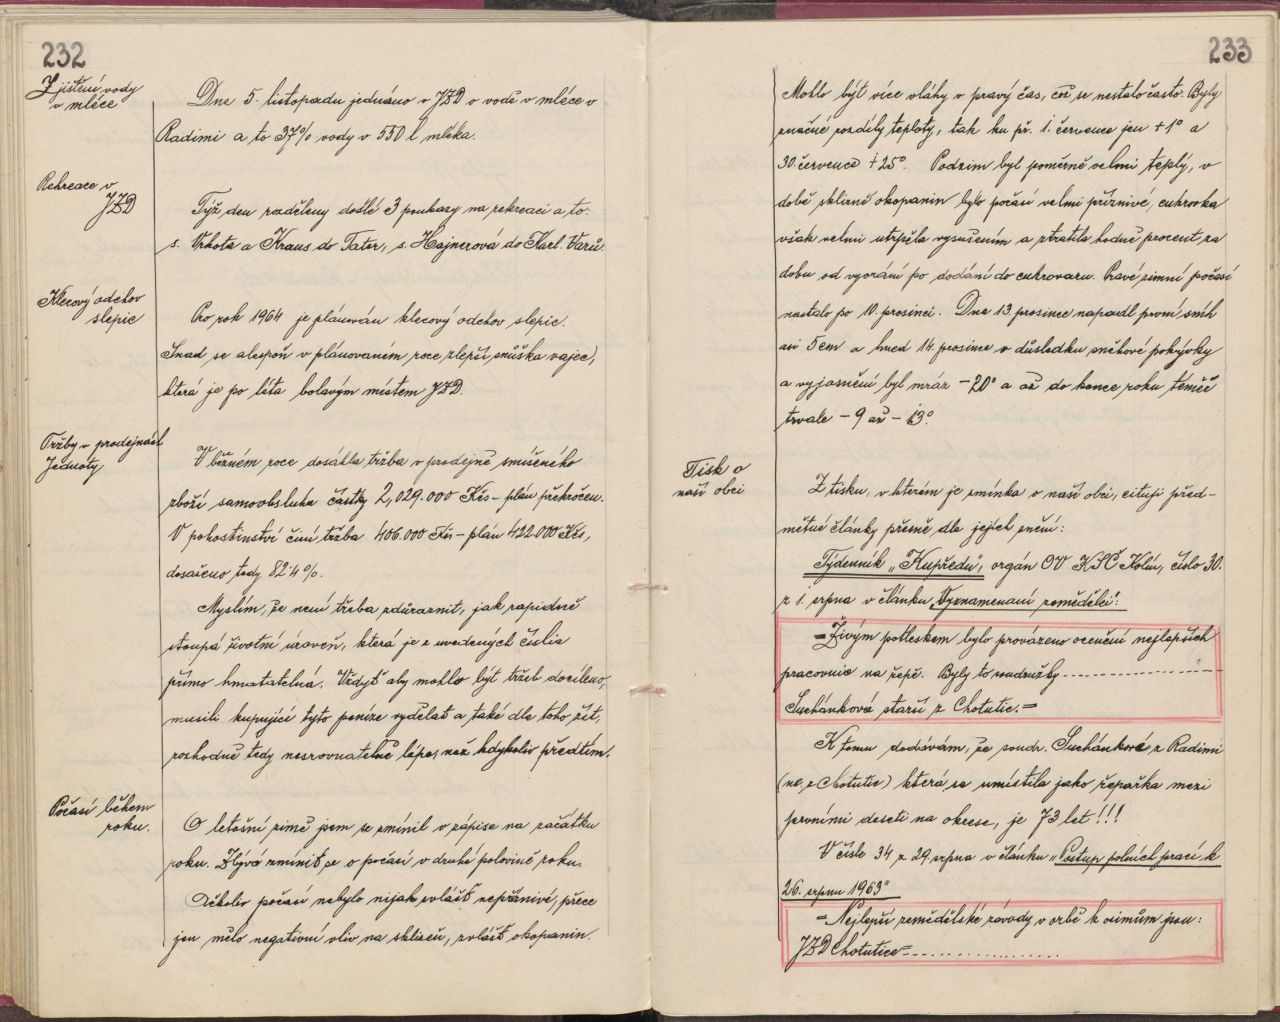 232
Zjištění vody
v mléce
Dne 5. listopadu jednáno v JZD o vodě v mléce v
Radimi a to 37% vody v 550 l mléka.
Rekreace v
JZD
Týž den rozděleny došlé 3 poukazy na rekreaci a to:
s. Vrkota a Kraus do Tater, s. Hajnerová do Karl. Varů.
Klecový odchov
slepic
Pro rok 1964 je plánován klecový odchov slepic.
Snad se alespoň v plánovaném roce zlepší snůška vajec,
která je po léta bolavým místem JZD.
Tržby v prodejnách
Jednoty
V běžném roce dosáhla tržba v prodejně smíšeného
zboží samoobsluha částky 2,029.000 Kčs – plán překročen.
V pohostinství činí tržba 406.000 Kčs – plán 422.000 Kčs,
dosaženo tedy 82.4%.
Myslím, že není třeba zdůraznit, jak rapidně
stoupá životní úroveň, která je z uvedených číslic
přímo hmatatelná. Vždyť aby mohlo být tržeb docíleno,
musili kupující tyto peníze vydělat a také dle toho žít,
rozhodně tedy nesrovnatelně lépe, než kdykoliv předtím.
Počasí během
roku.
O letošní zimě jsem se zmínil v zápise na začátku
roku. Zbývá zmínit se o počasí v druhé polovině roku.
Ačkoliv počasí nebylo nijak zvlášť nepříznivé, přece
jen mělo negativní vliv na sklizeň, zvlášť okopanin.
233
Mohlo být více vláhy v pravý čas, což se nestalo často. Byly
značné rozdíly teploty, tak ku př. 1. července jen +1° a
30. července +25°. Podzim byl poměrně velmi teplý, v
době sklizně okopanin bylo počasí velmi příznivé, cukrovka
však velmi utrpěla vysušením a ztratila hodně procent za
dobu od vyorání po dodání do cukrovaru. Pravé zimní počasí
nastalo po 10. prosinci. Dne 13. prosince napadl první sníh
asi 5 cm a hned 14. prosince v důsledku sněhové pokrývky
a vyjasnění byl mráz –20° a až do konce roku téměř
trvale –9 až –13°.
Tisk o
naší obci
Z tisku, v kterém je zmínka o naší obci, cituji před-
mětné články přesně dle jejich znění:
Týdenník „Kupředu", orgán OV KSČ Kolín, číslo 30.
z 1. srpna v článku „Vyznamenaní zemědělci":
= Živým potleskem bylo provázeno ocenění nejlepších
pracovnic na řepě. Byly to soudružky - - - - - - - - - - - - - - -
Suchánková starší z Chotutic. =
K tomu dodávám, že soudr. Suchánková z Radimi
(ne z Chotutic) která se umístila jako řepařka mezi
prvními deseti na okrese, je 73 let!!!
V čísle 34 z 29. srpna v článku „Postup polních prací k
26. srpnu 1963"
= Nejlepší zemědělské závody v orbě k ozimům jsou:
JZD Chotutice = . . . . . . . . . . . . . . . . .